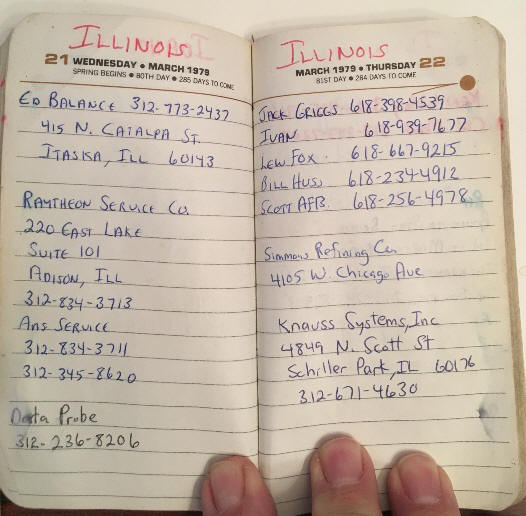 ILLINOIS
21 WEDNESDAY • MARCH 1979
SPRING BEGINS • 80TH DAY • 285 DAYS TO COME
ED BALANCE 312-773-2437
415 N. CATALPA ST.
ITASKA, ILL 60143
RAYTHEON SERVICE CO.
220 EAST LAKE
SUITE 101
ADISON, ILL
312-834-3713
ANS SERVICE
312-834-3711
312-345-8620
Data Probe
312-236-8206
ILLINOIS
MARCH 1979 • THURSDAY 22
81ST DAY • 284 DAYS TO COME
JACK GRIGGS 618-398-4539
IVAN 618-939-7677
LEW FOX 618-667-9215
BILL HUSS 618-234-4912
SCOTT AFB. 618-256-4978
Simmons Refining Co.
4105 W. Chicago Ave
Knauss Systems, Inc
4849 N. Scott St
Schiller Park, IL 60176
312-671-4630